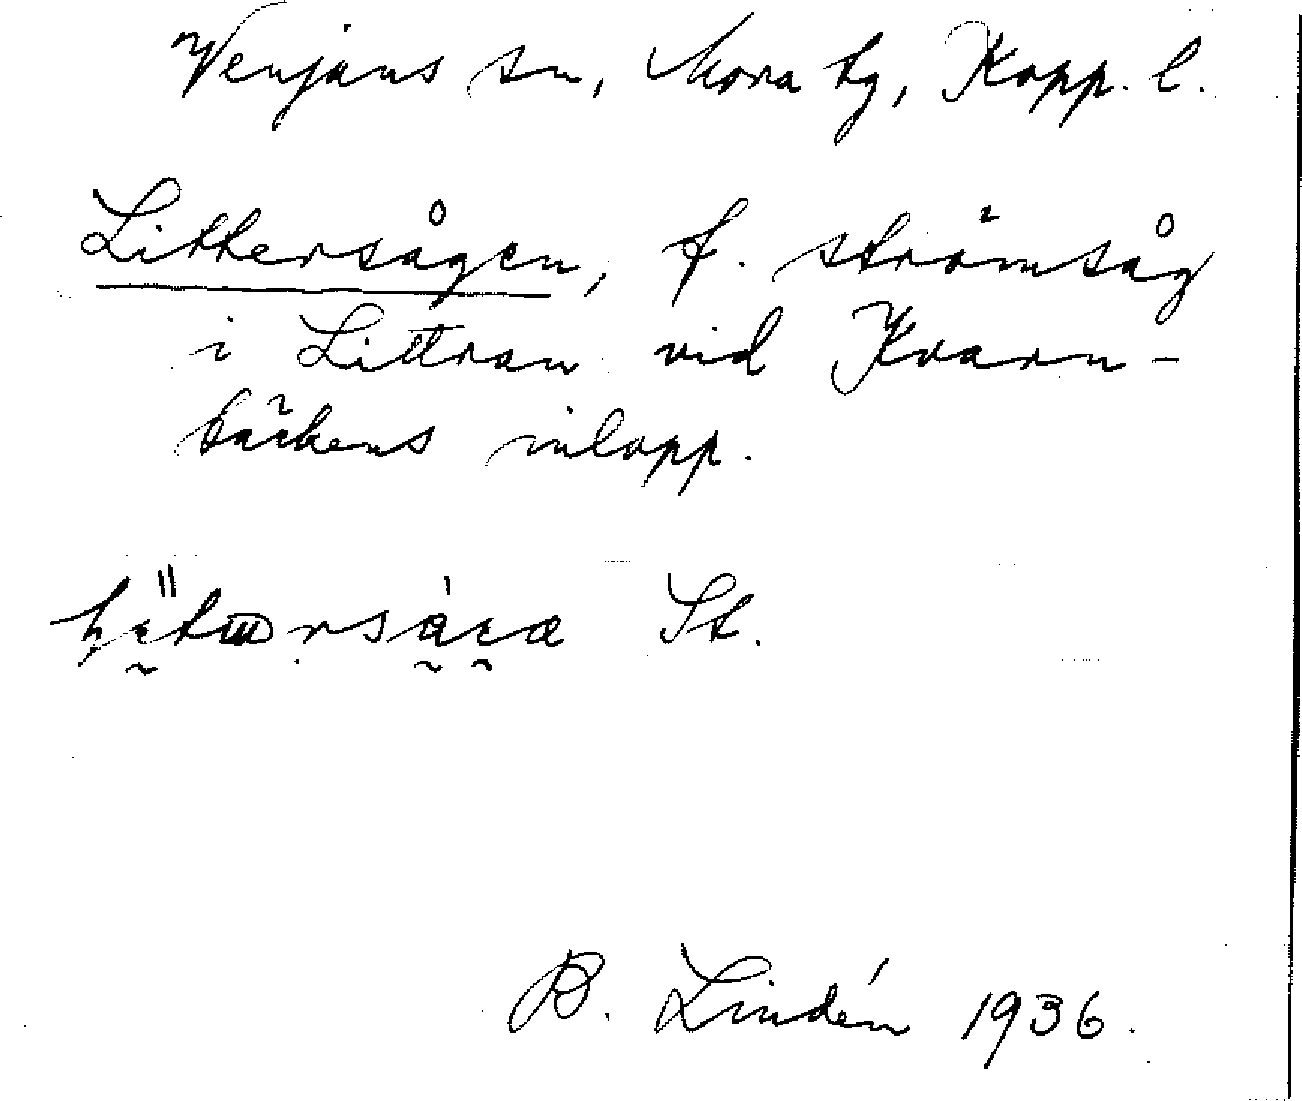 Venjans sn, Mora tg, Kopp. l.
Littersågen, f. strömsåg
i Littran vid Kvarn-
bäckens inlopp.
St.
B. Lindén 1936.